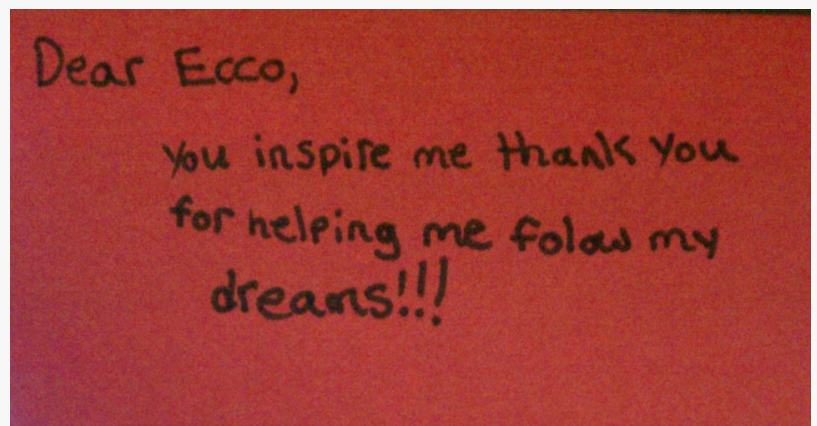 Dear Ecco,
you inspire me thank you
for helping me folow my
dreams!!!